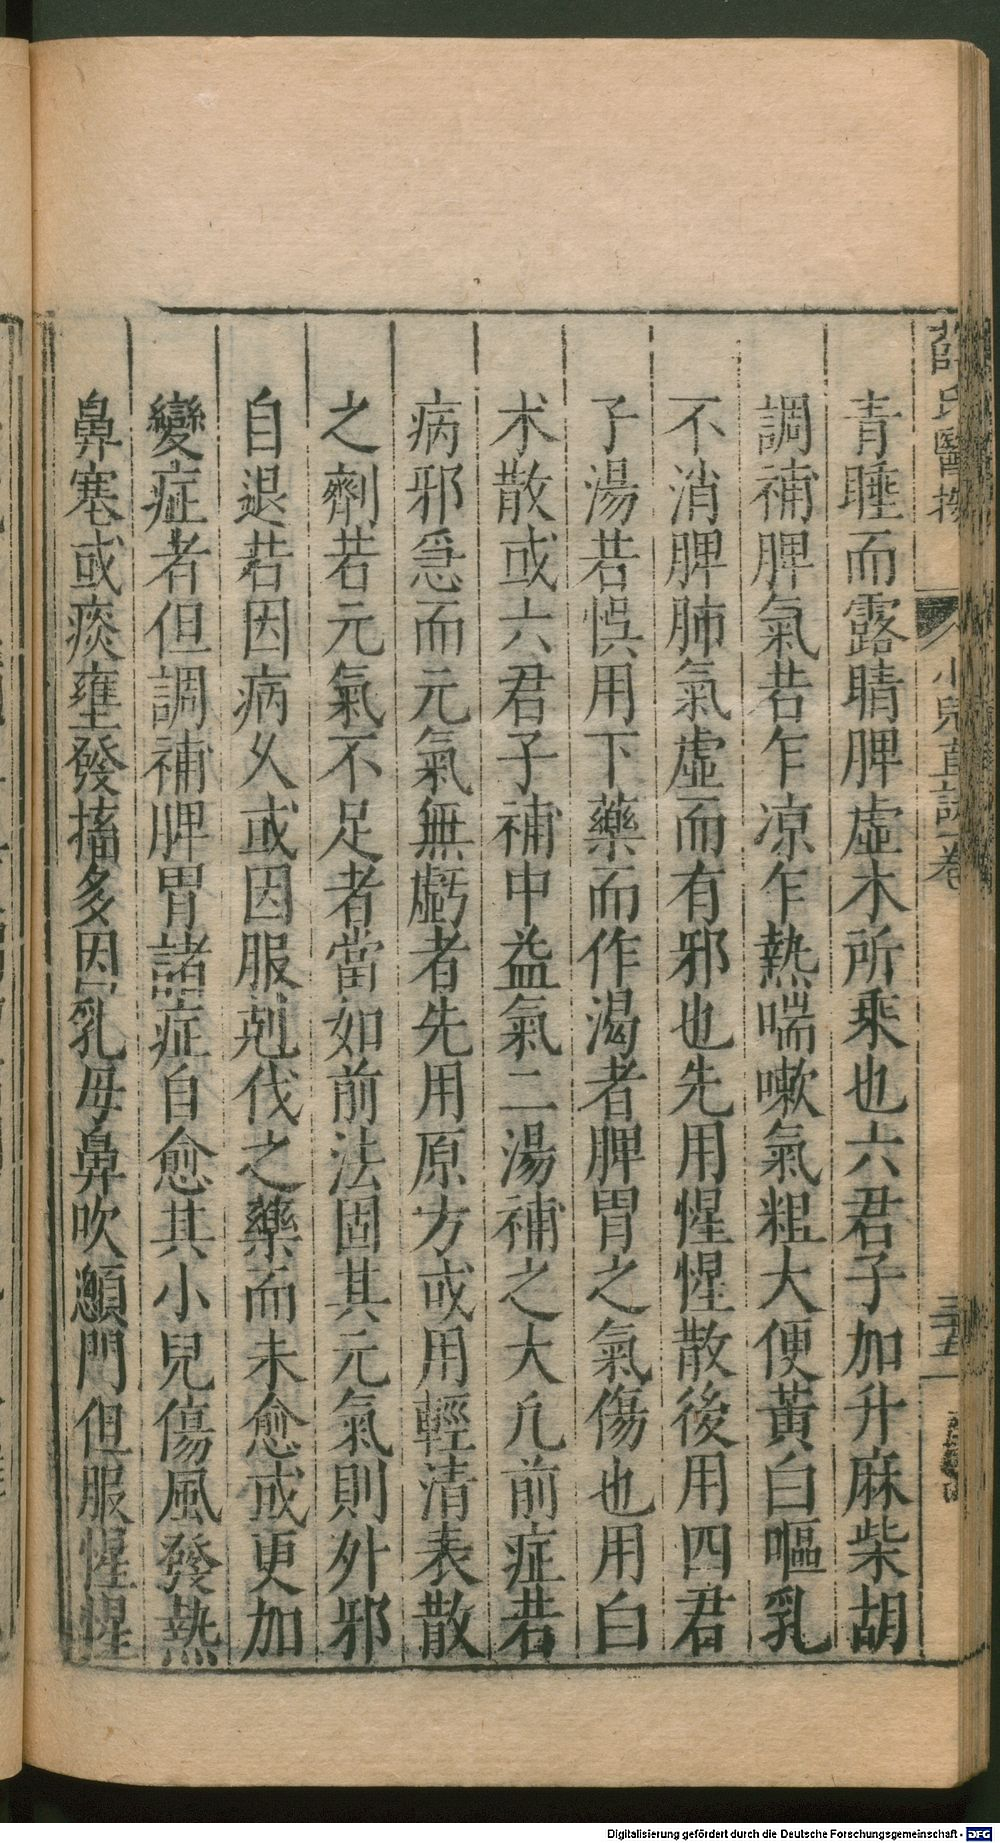 青睡而露睛脾虛木所乘也六君子加升麻柴胡
調補脾氣若乍凉乍熱喘嗽氣粗大便黃白嘔乳
不消脾肺氣虛而有邪也先用惺惺散後用四君
子湯若悞用下藥而作渴者脾胃之氣傷也用白
术散或六君子補中益氣二湯補之大凡前症若
病邪急而元氣無虧者先用原方或用輕清表散
之劑若元氣不足者當如前法固其元氣則外邪
自退若因病久或因服剋伐之藥而未愈或更加
變症者但調補脾胃諸症自愈其小兒傷風發熱
鼻塞或痰壅發搐多因乳母鼻吹顖門但服惺惺
小兒直訣 卷 三五
Digitalisierung gefördert durch die Deutsche Forschungsgemeinschaft - DFG